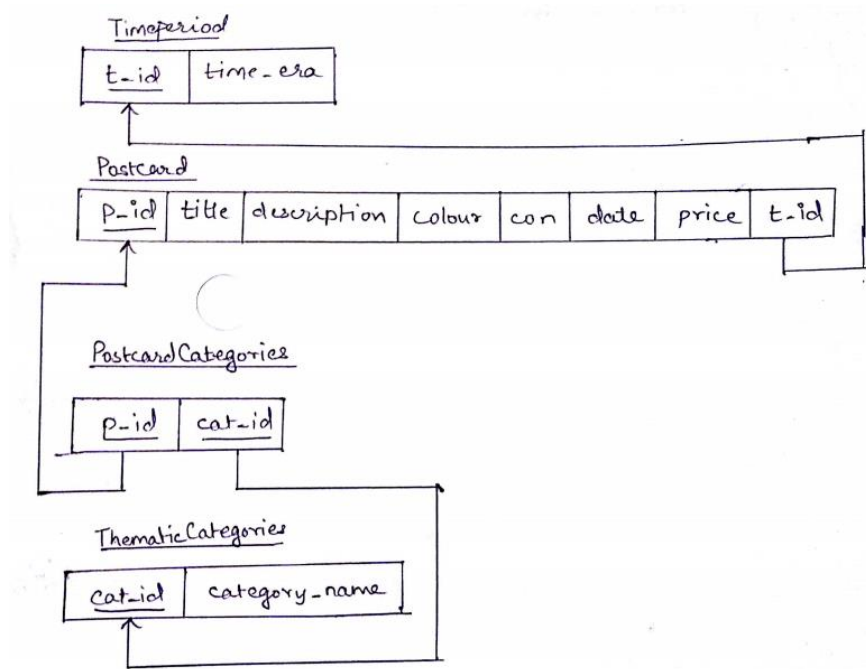 Timeperiod
t_id time_era
Postcard
p_id title description colour con date price t_id
PostcardCategories
p_id cat_id
ThematicCategories
cat_id category_name